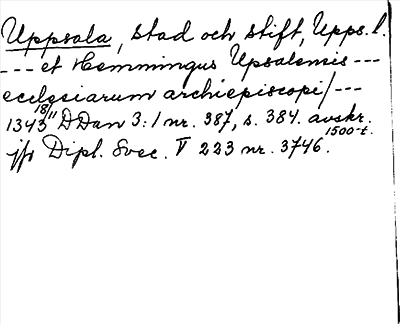 Uppsala, stad och stift, Upps. l.
--- et Hemmingus Upsalemis ---
ecclesiarum archiepiscopi/---
1343 18/11 DDan 3:1 nr. 387, s. 384. avskr. 1500-t.
jfr Dipl. Svec. V 223 nr. 3746.